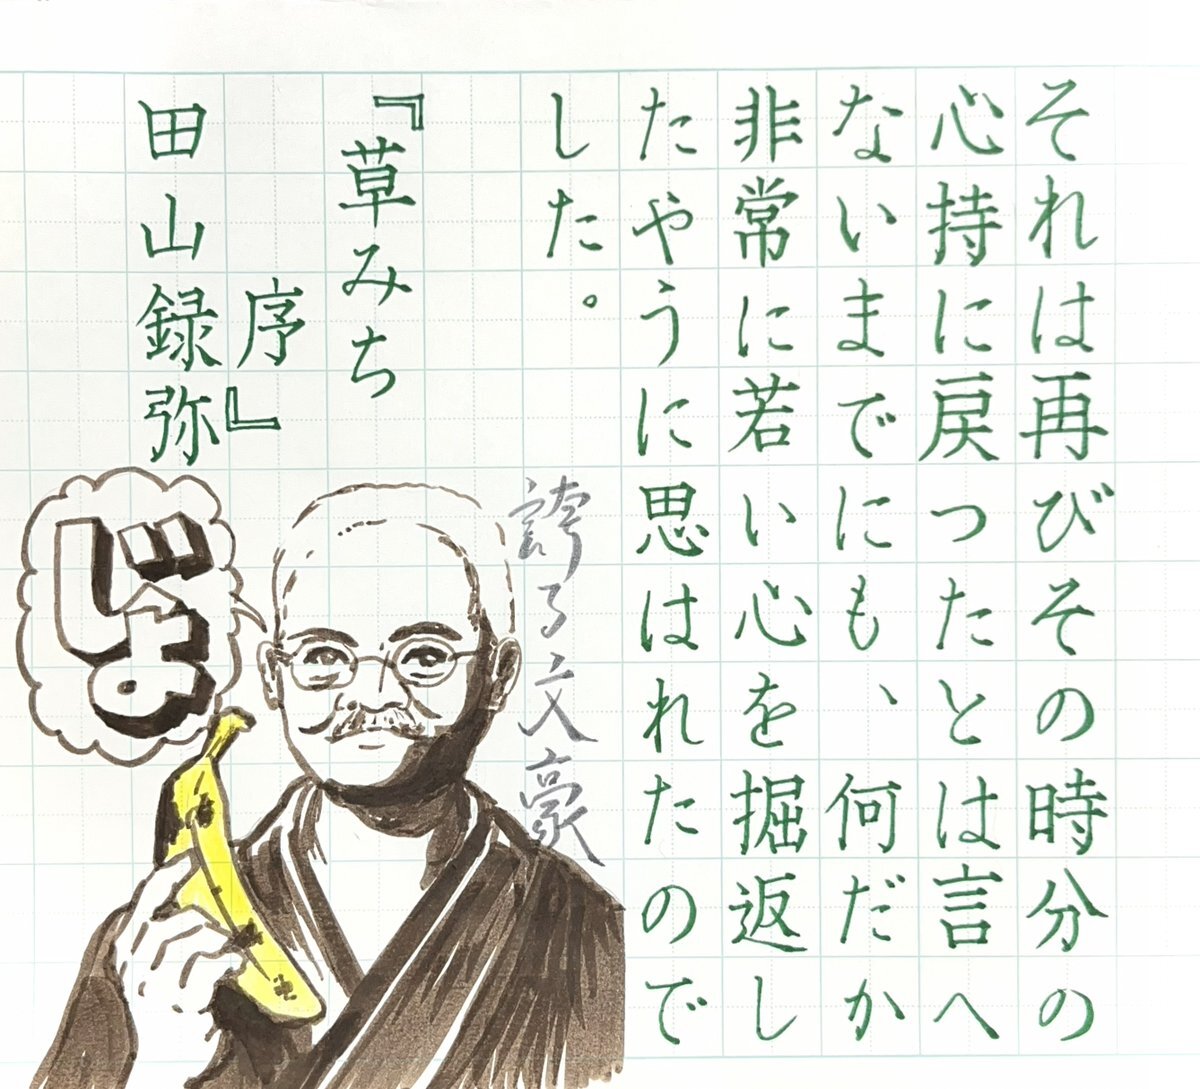 それは再びその時分の
心持に戻つたとは言へ
ないまでにも、何だか
非常に若い心を掘返し
たやうに思はれたので
した。
『草みち
序』
田山録弥
誇る文豪
じょ